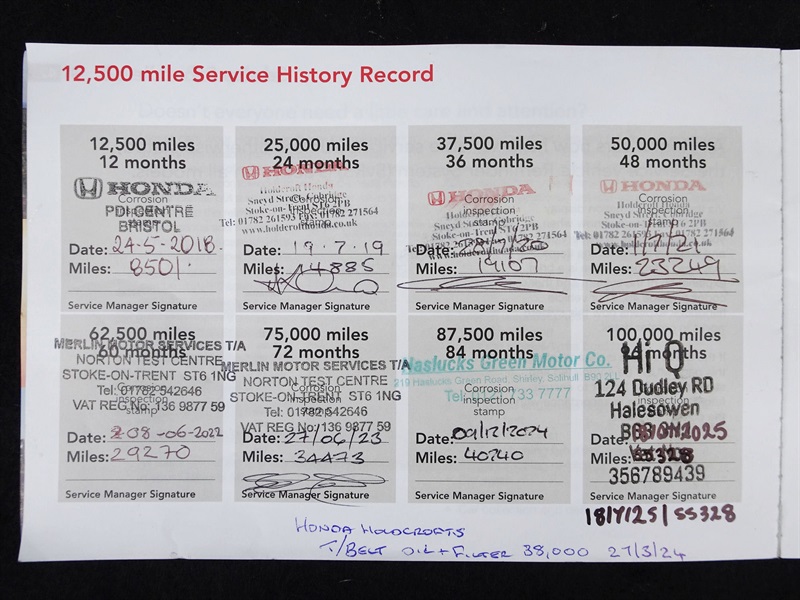 12,500 mile Service History Record
12,500 miles
12 months
HONDA
Corrosion
PDI CENTRE
BRISTOL
Date: 24-5-2018.
Miles: 8501.
Service Manager Signature
25,000 miles
24 months
HONDA
Holdcroft Honda
Sneyd Street, Cobridge
Stoke-on-Trent ST6 2PB
Tel: 01782 261593 Fax: 01782 271564
www.holdcrofthonda.co.uk
Date: 19.7.19
Miles: 14885
Service Manager Signature
37,500 miles
36 months
HONDA
Corrosion
inspection
stamp
Holdcroft Honda
Sneyd Street, Cobridge
Stoke-on-Trent ST6 2PB
Date:
Miles: 19107
Service Manager Signature
50,000 miles
48 months
HONDA
Corrosion
inspection
stamp
Tel: 01782 261593 Fax: 01782 271564
Date:
Miles: 23249
Service Manager Signature
62,500 miles
60 months
MERLIN MOTOR SERVICES T/A
NORTON TEST CENTRE
STOKE-ON-TRENT ST6 1NG
Tel: 01782 542646
Corrosion
inspection
stamp
VAT REG No: 136 9877 59
Date: 08-06-2022
Miles: 29270
Service Manager Signature
75,000 miles
72 months
MERLIN MOTOR SERVICES T/A
NORTON TEST CENTRE
STOKE-ON-TRENT ST6 1NG
Tel: 01782 542646
VAT REG No: 136 9877 59
Date: 27/06/23
Miles: 34473
Service Manager Signature
87,500 miles
84 months
Haslucks Green Motor Co.
219 Haslucks Green Road, Shirley, Solihull B90 2LG
Corrosion
inspection
stamp
Date: 09/12/2024
Miles: 40240
Service Manager Signature
100,000 miles
months
Hi Q
124 Dudley RD
Halesowen
Date: 2025
Miles:
356789439
Service Manager Signature
18/7/25 | 55328
HONDA HOLDCROFTS
T/BELT OIL + FILTER 38,000 27/3/24